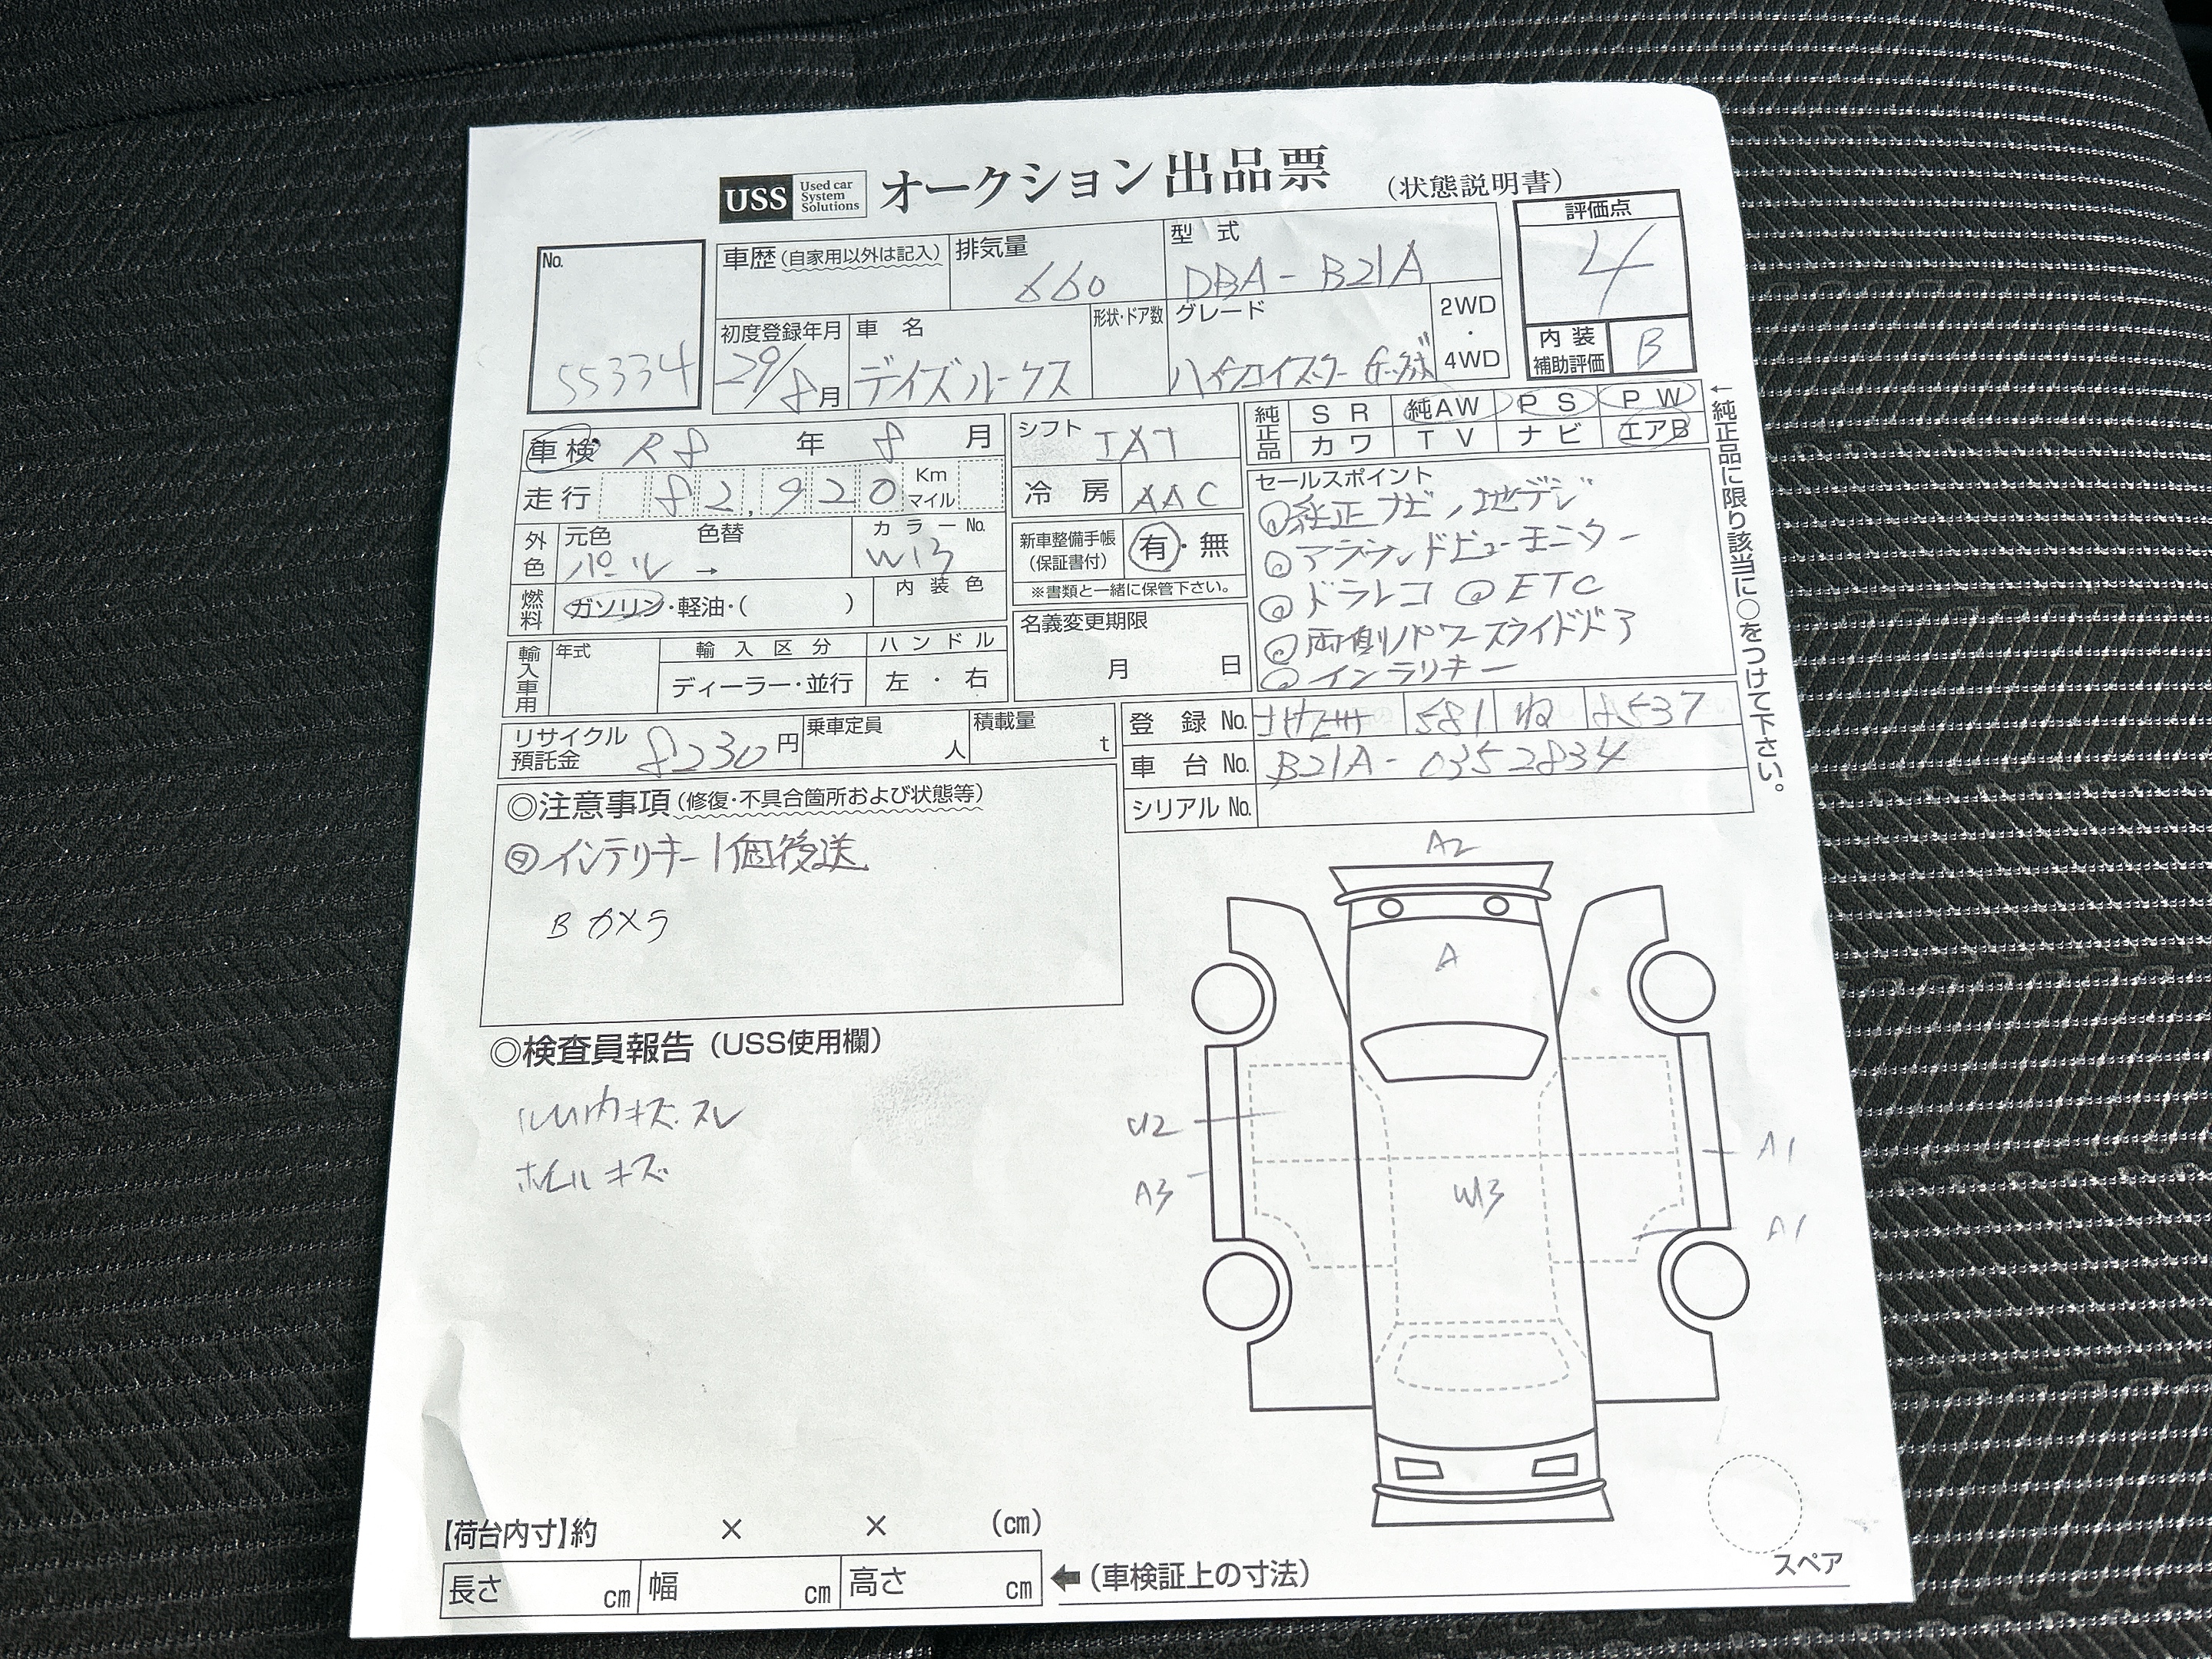 USS Used car System Solutions オークション出品票 (状態説明書)
評価点
4
内装補助評価 B
No.
55334
車歴(自家用以外は記入)
排気量
660
型式
DBA-B21A
初度登録年月
29/8月
車名
デイズルークス
形状・ドア数
グレード
ハイウェイスター
2WD・4WD
車検 R8年8月
走行 82,920 Km マイル
シフト
IAT
冷房 AAC
純正品 SR 純AW PS PW
カワ TV ナビ エアB
←純正品に限り該当に○をつけて下さい。
外色 元色 色替 カラーNo.
パール → W13
燃料 ガソリン・軽油・( )
内装色
新車整備手帳(保証書付) 有・無
※書類と一緒に保管下さい。
名義変更期限
月 日
セールスポイント
◎純正ナビ、地デジ
◎アラウンドビューモニター
◎ドラレコ ◎ETC
◎両側パワースライドドア
◎インテリキー
輸入車用 年式 輸入区分 ハンドル
ディーラー・並行 左・右
リサイクル預託金 8230円
乗車定員 人
積載量 t
登録No. 581 ね 8537
車台No. B21A-0352834
シリアルNo.
◎注意事項(修復・不具合箇所および状態等)
◎インテリキー1個後送
Bカメラ
◎検査員報告(USS使用欄)
内キズ.スレ
ホイルキズ
A2
A
U2
A3
W13
A1
A1
スペア
【荷台内寸】約 × × (cm)
長さ cm 幅 cm 高さ cm ←(車検証上の寸法)